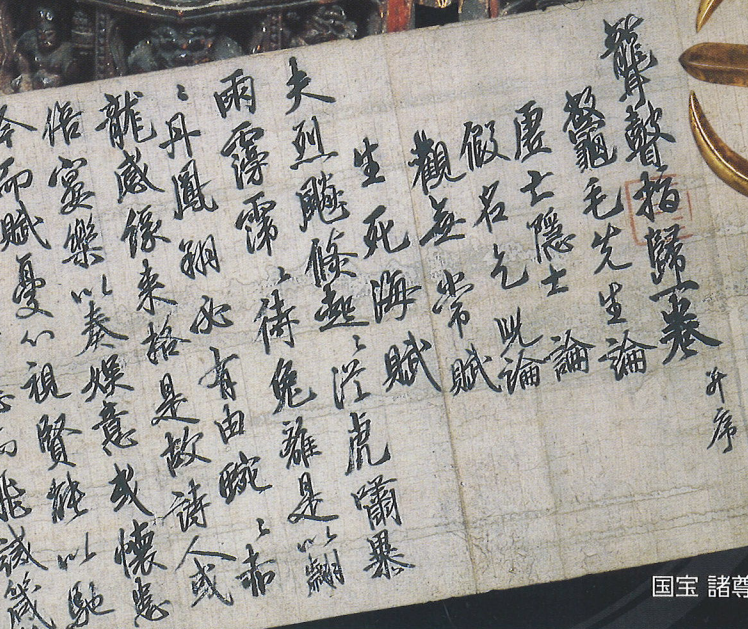 聾瞽指歸一卷 并序
鼇毛先生論
虚亡隱士論
假名乞兒論
觀無常賦
生死海賦
夫烈飈倏起〻從虎嘯暴
雨霶霈〻待兔離是以翩
〻丹鳳翔必有由蜿〻赤
龍感緣来格是故詩人或
宴樂以奏娛意或懷患
而賦憂心視賢能以馳
飛誡箴
国宝 諸尊